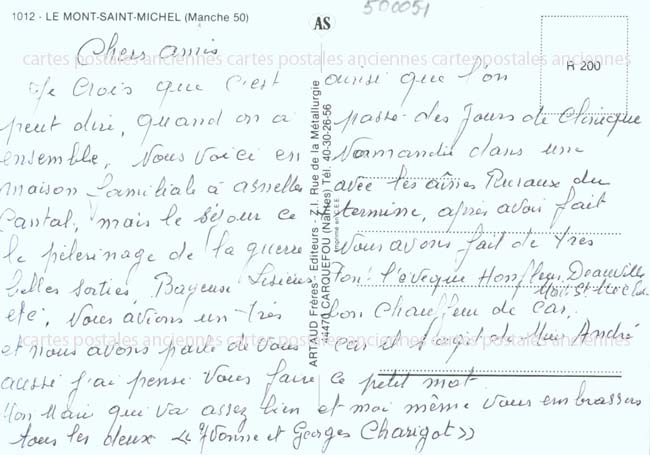 1012 - LE MONT-SAINT-MICHEL (Manche 50)
AS
500051
R 200
cartes postales anciennes cartes postales anciennes cartes postales anciennes
Chers amis
Je Crois que c'est ainsi que l'on
peut dire, quand on a passé des jours de Clinique
ensemble, Nous voici en Normandie dans une
maison familiale à asnelles avec les aînés Ruraux du
Cantal, mais le séjour ce termine, après avoir fait
le pèlerinage de la guerre Nous avons fait de très
belles sorties, Bayeux Lisieux Pon! l'évèque Honfleur, Deauville
Mon! St Michel
etc, Nous avions un très bon Chauffeur de Car,
et nous avons parlé de vous Car il s'agit de Mr André
cartes postales anciennes cartes postales anciennes cartes postales anciennes
aussi j'ai pensé vous faire ce petit mot
Mon Mari qui va assez bien et moi même vous embrassons
tous les deux << Yvonne et Georges Charigot >>
ARTAUD Frères - Editeurs - Z.I. Rue de la Métallurgie
44470 CARQUEFOU (Nantes) Tél. 40-30-26-56
Imprimé en C.E.E.